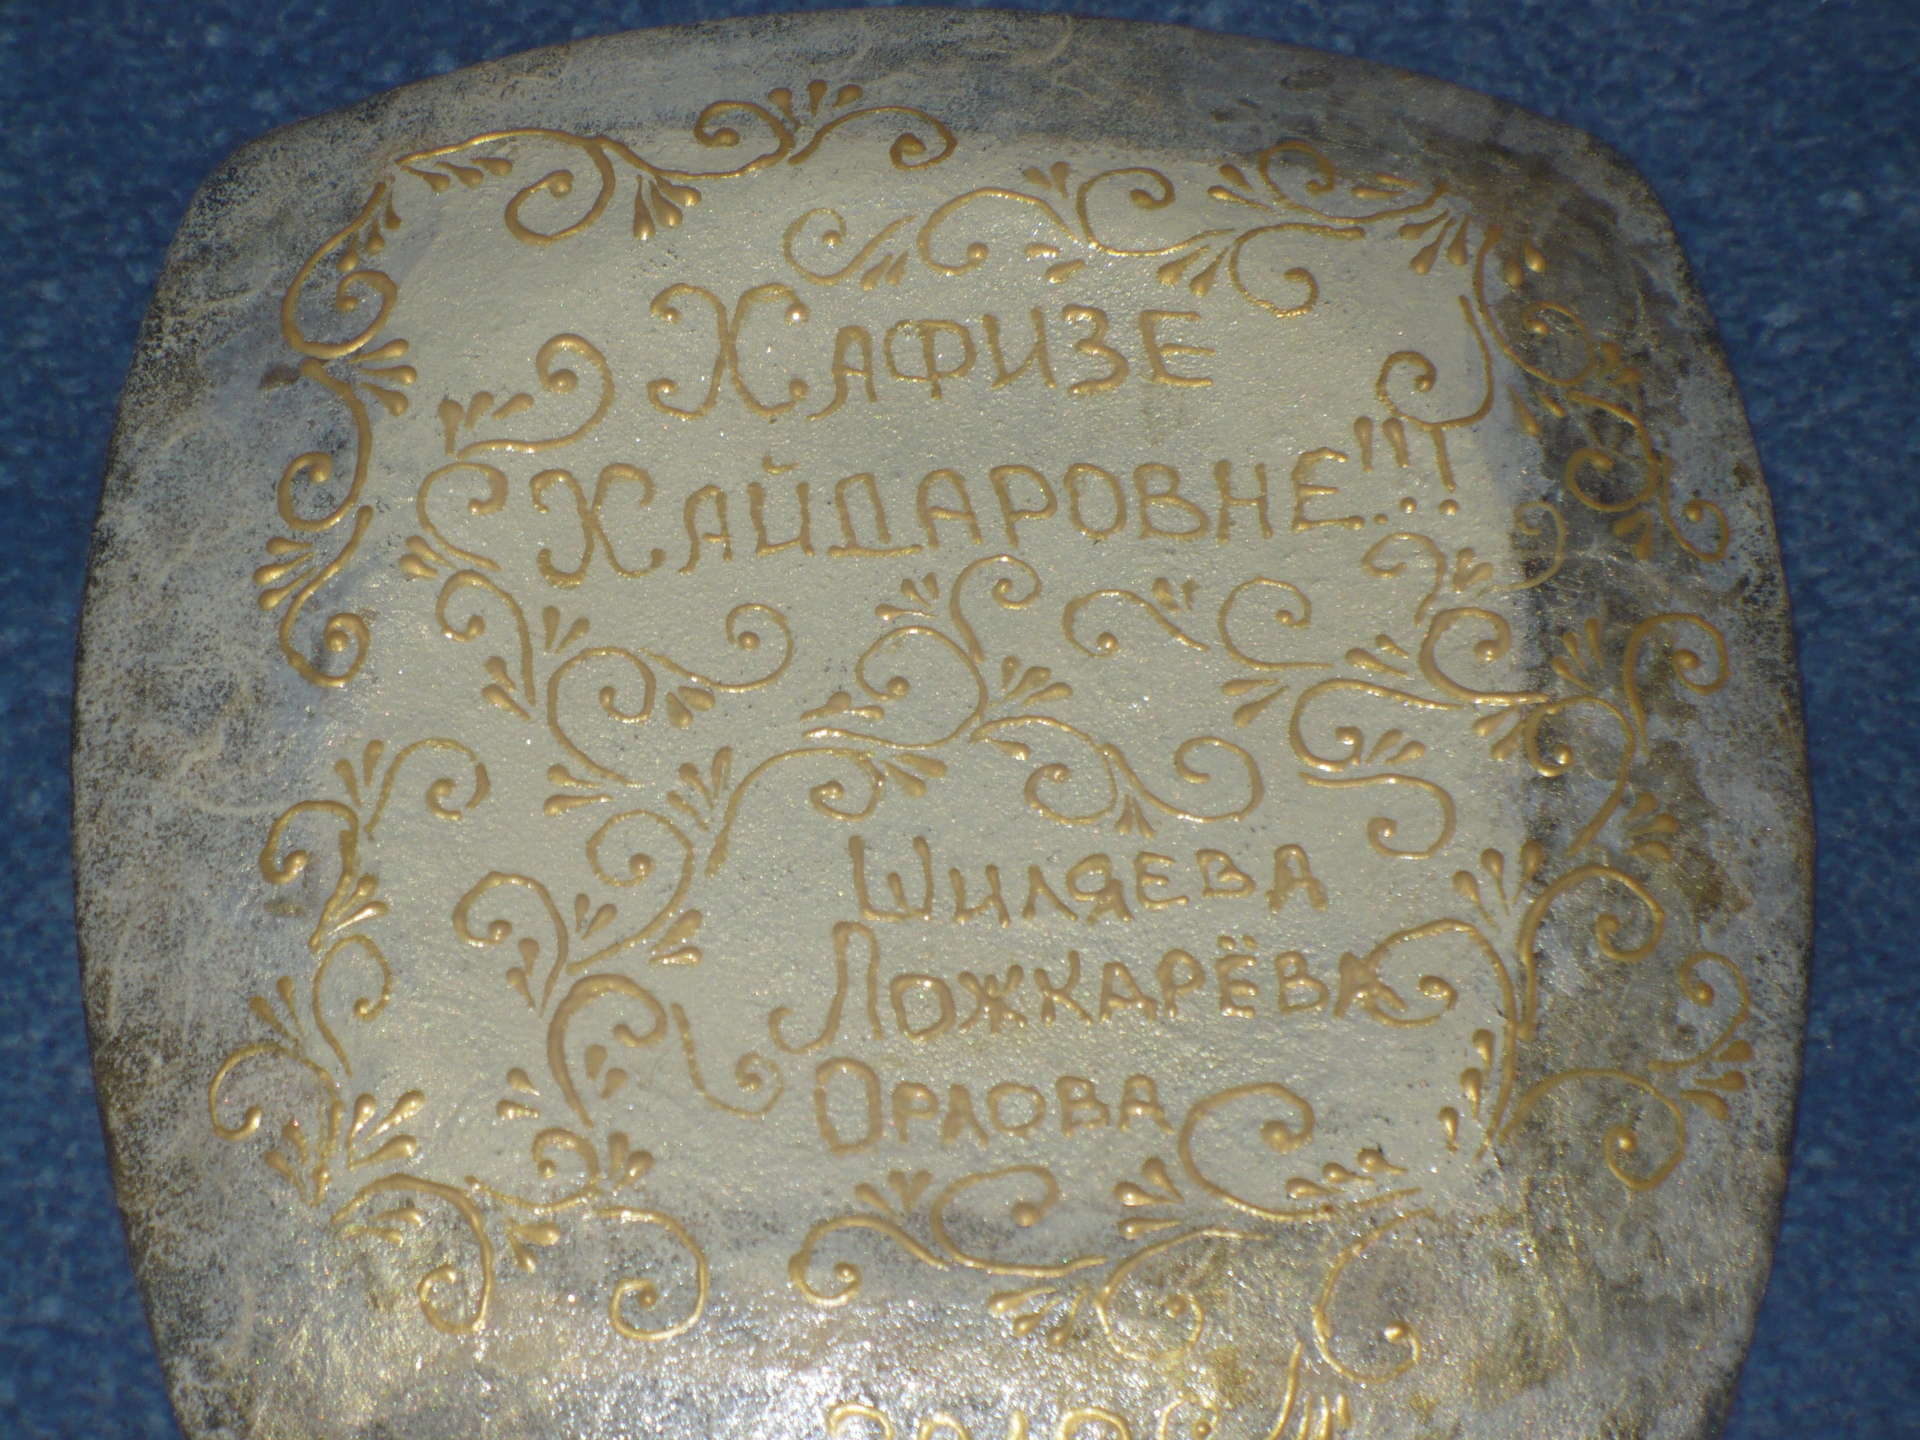 ХАФИЗЕ
ХАЙДАРОВНЕ!!!
ШИЛЯЕВА
ЛОЖКАРЁВА
ОРЛОВА